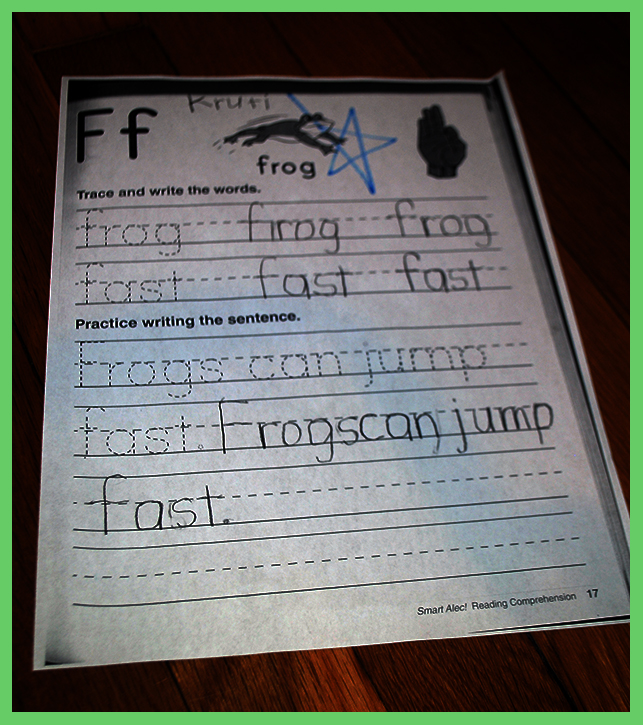 Kruti
Ff
frog
Trace and write the words.
frog frog frog
fast fast fast
Practice writing the sentence.
Frogs can jump
fast. Frogs can jump
fast.
Smart Alec! Reading Comprehension 17